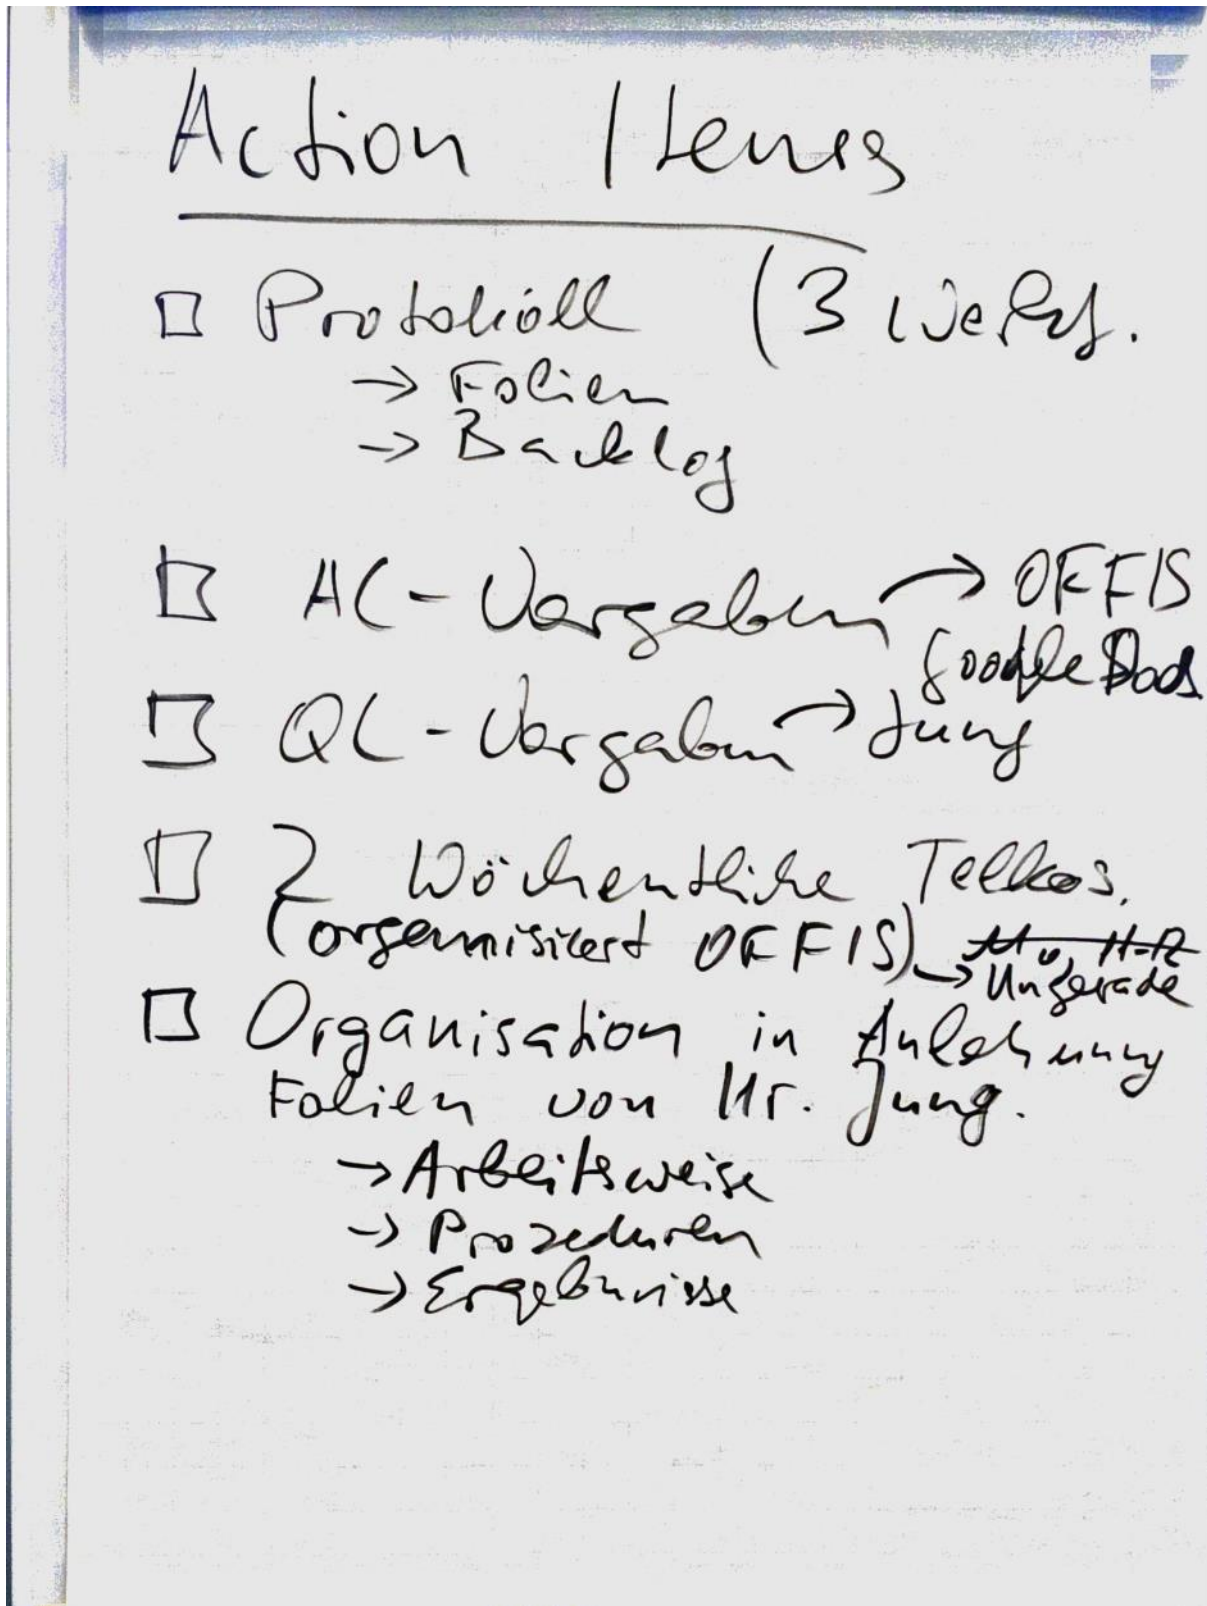 Action Items
□ Protokoll (3 Werkt.
→ Folien
→ Backlog
□ AC-Vorgaben → OFFIS
Google Docs
□ QC-Vorgaben → Jung
□ 2 Wöchentliche Telkos.
(organisiert OFFIS)
→ Ungerade
□ Organisation in Anlehnung
Folien von Hr. Jung.
→ Arbeitsweise
→ Prozeduren
→ Ergebnisse